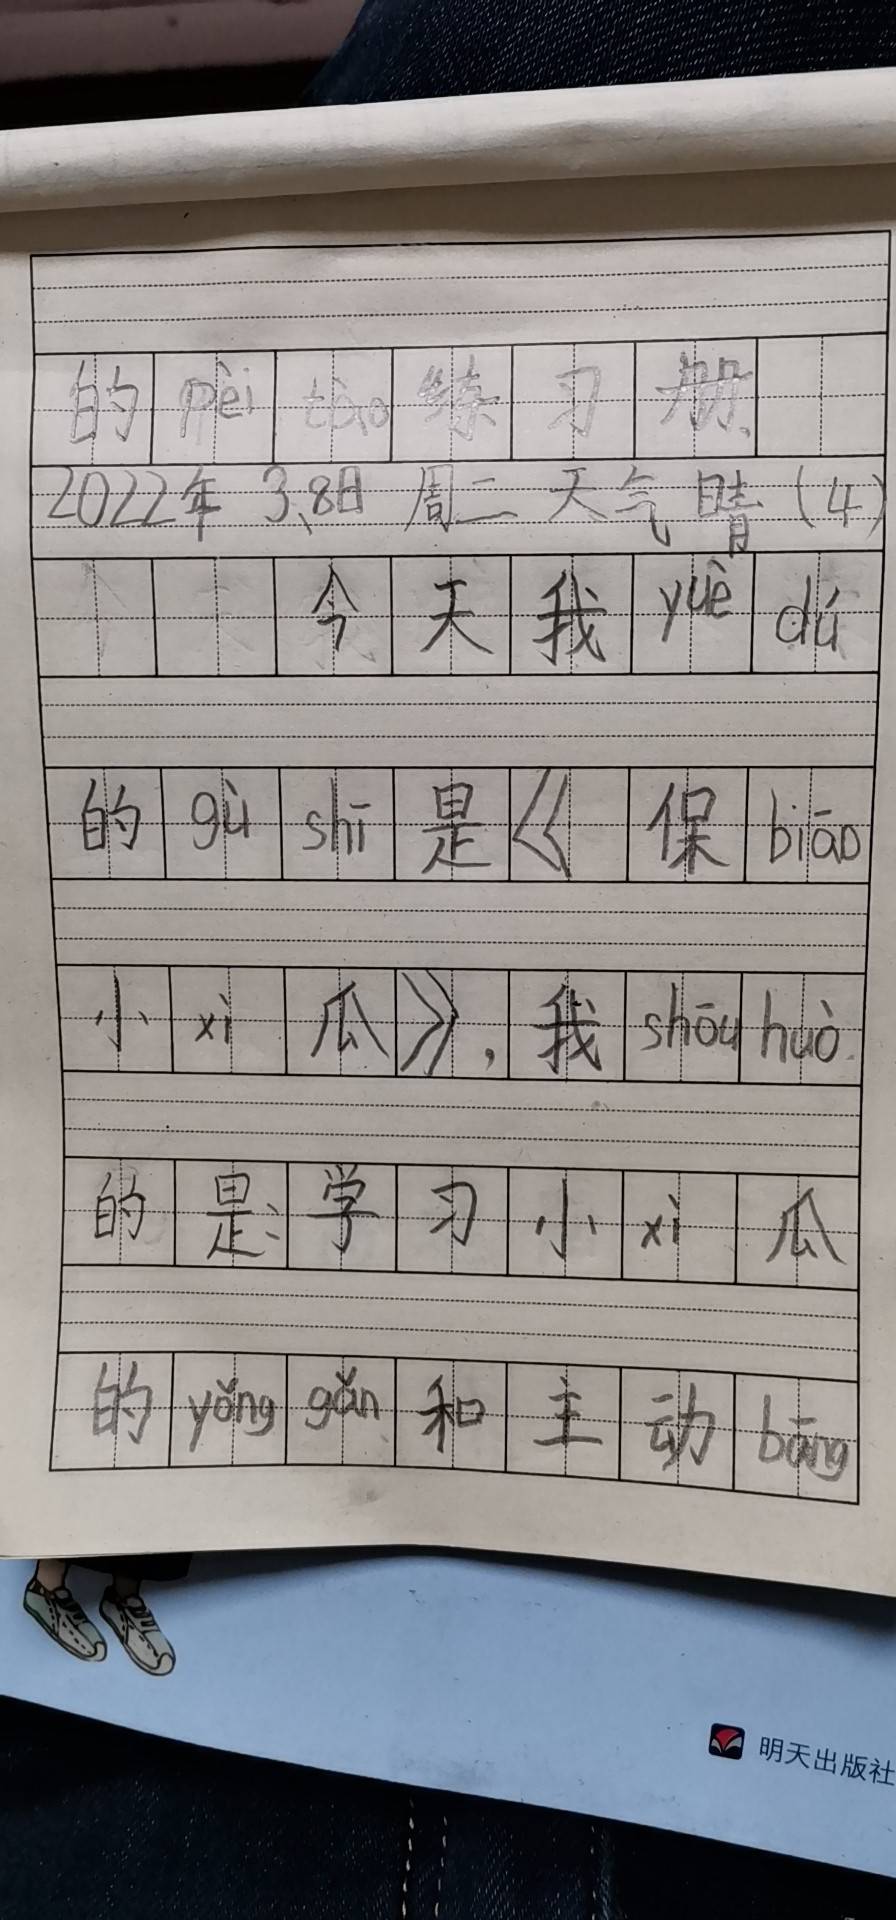 的pèi tào练习册.
2022年 3、8日 周二 天气晴(4)
今天我yuè dú
的gù shī是《保biāo
小xì瓜》,我shōu huò
的是:学习小xì瓜
的yǒng gǎn和主动bāng
明天出版社